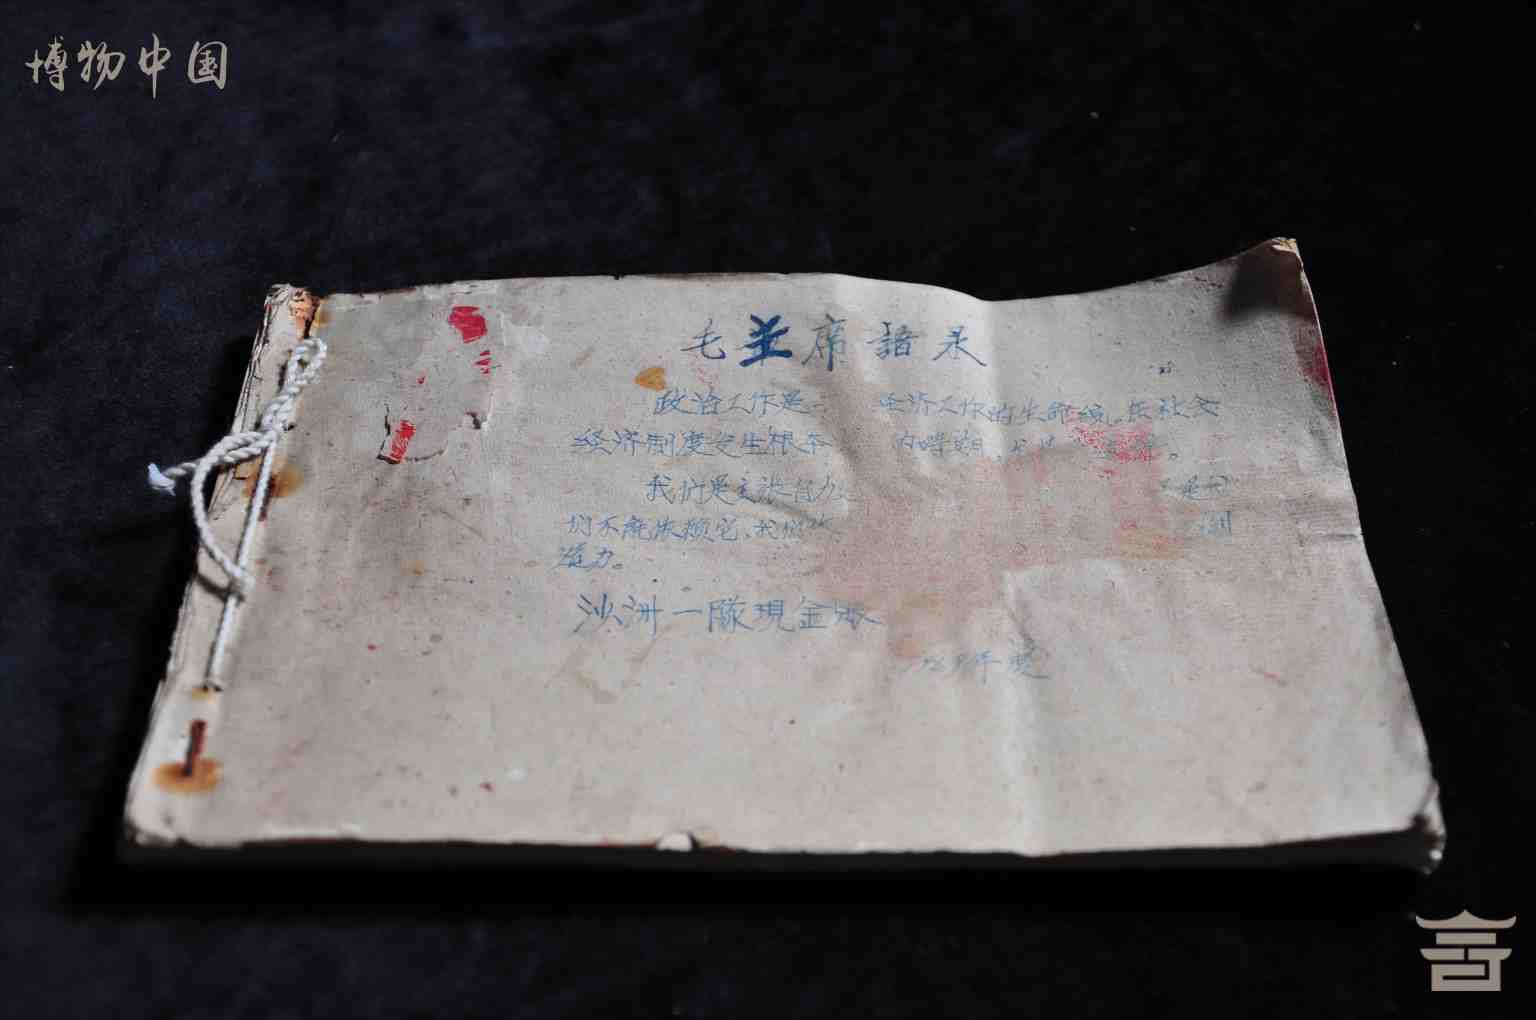 博物中国
毛主席語录
政治工作是 经济工作的生命线,在社会
经济制度发生根本 的時期,尤其 。
我们是主张自力 是我
们不能依赖它,我们 創
造力。
沙洲一隊現金帐
年度